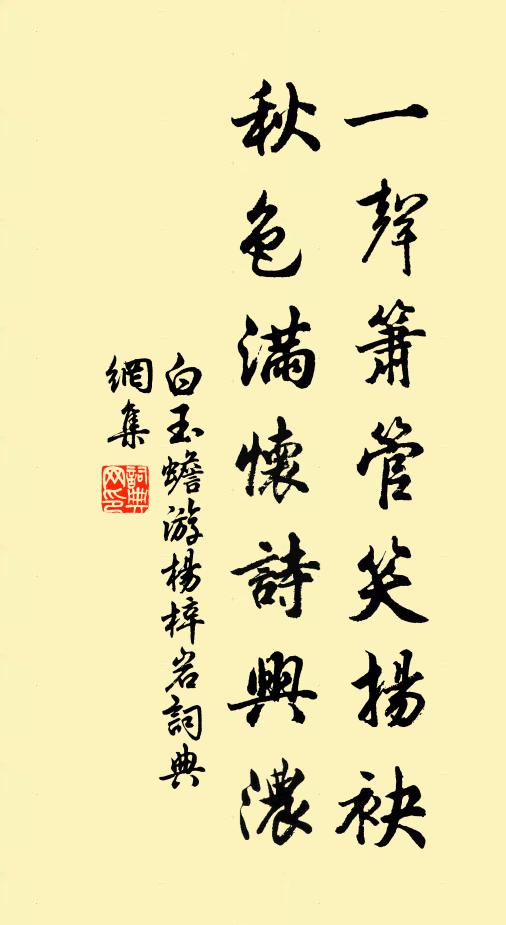 一聲簫管笑揚袂
秋色滿懷詩興濃
白玉蟾游楊梓岩詞典
網集
詞典網印